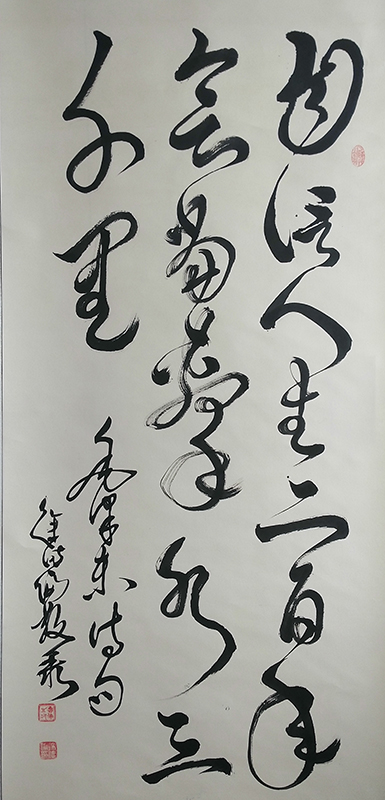 自信人生二百年
会當擊水三
千里
毛澤东诗句